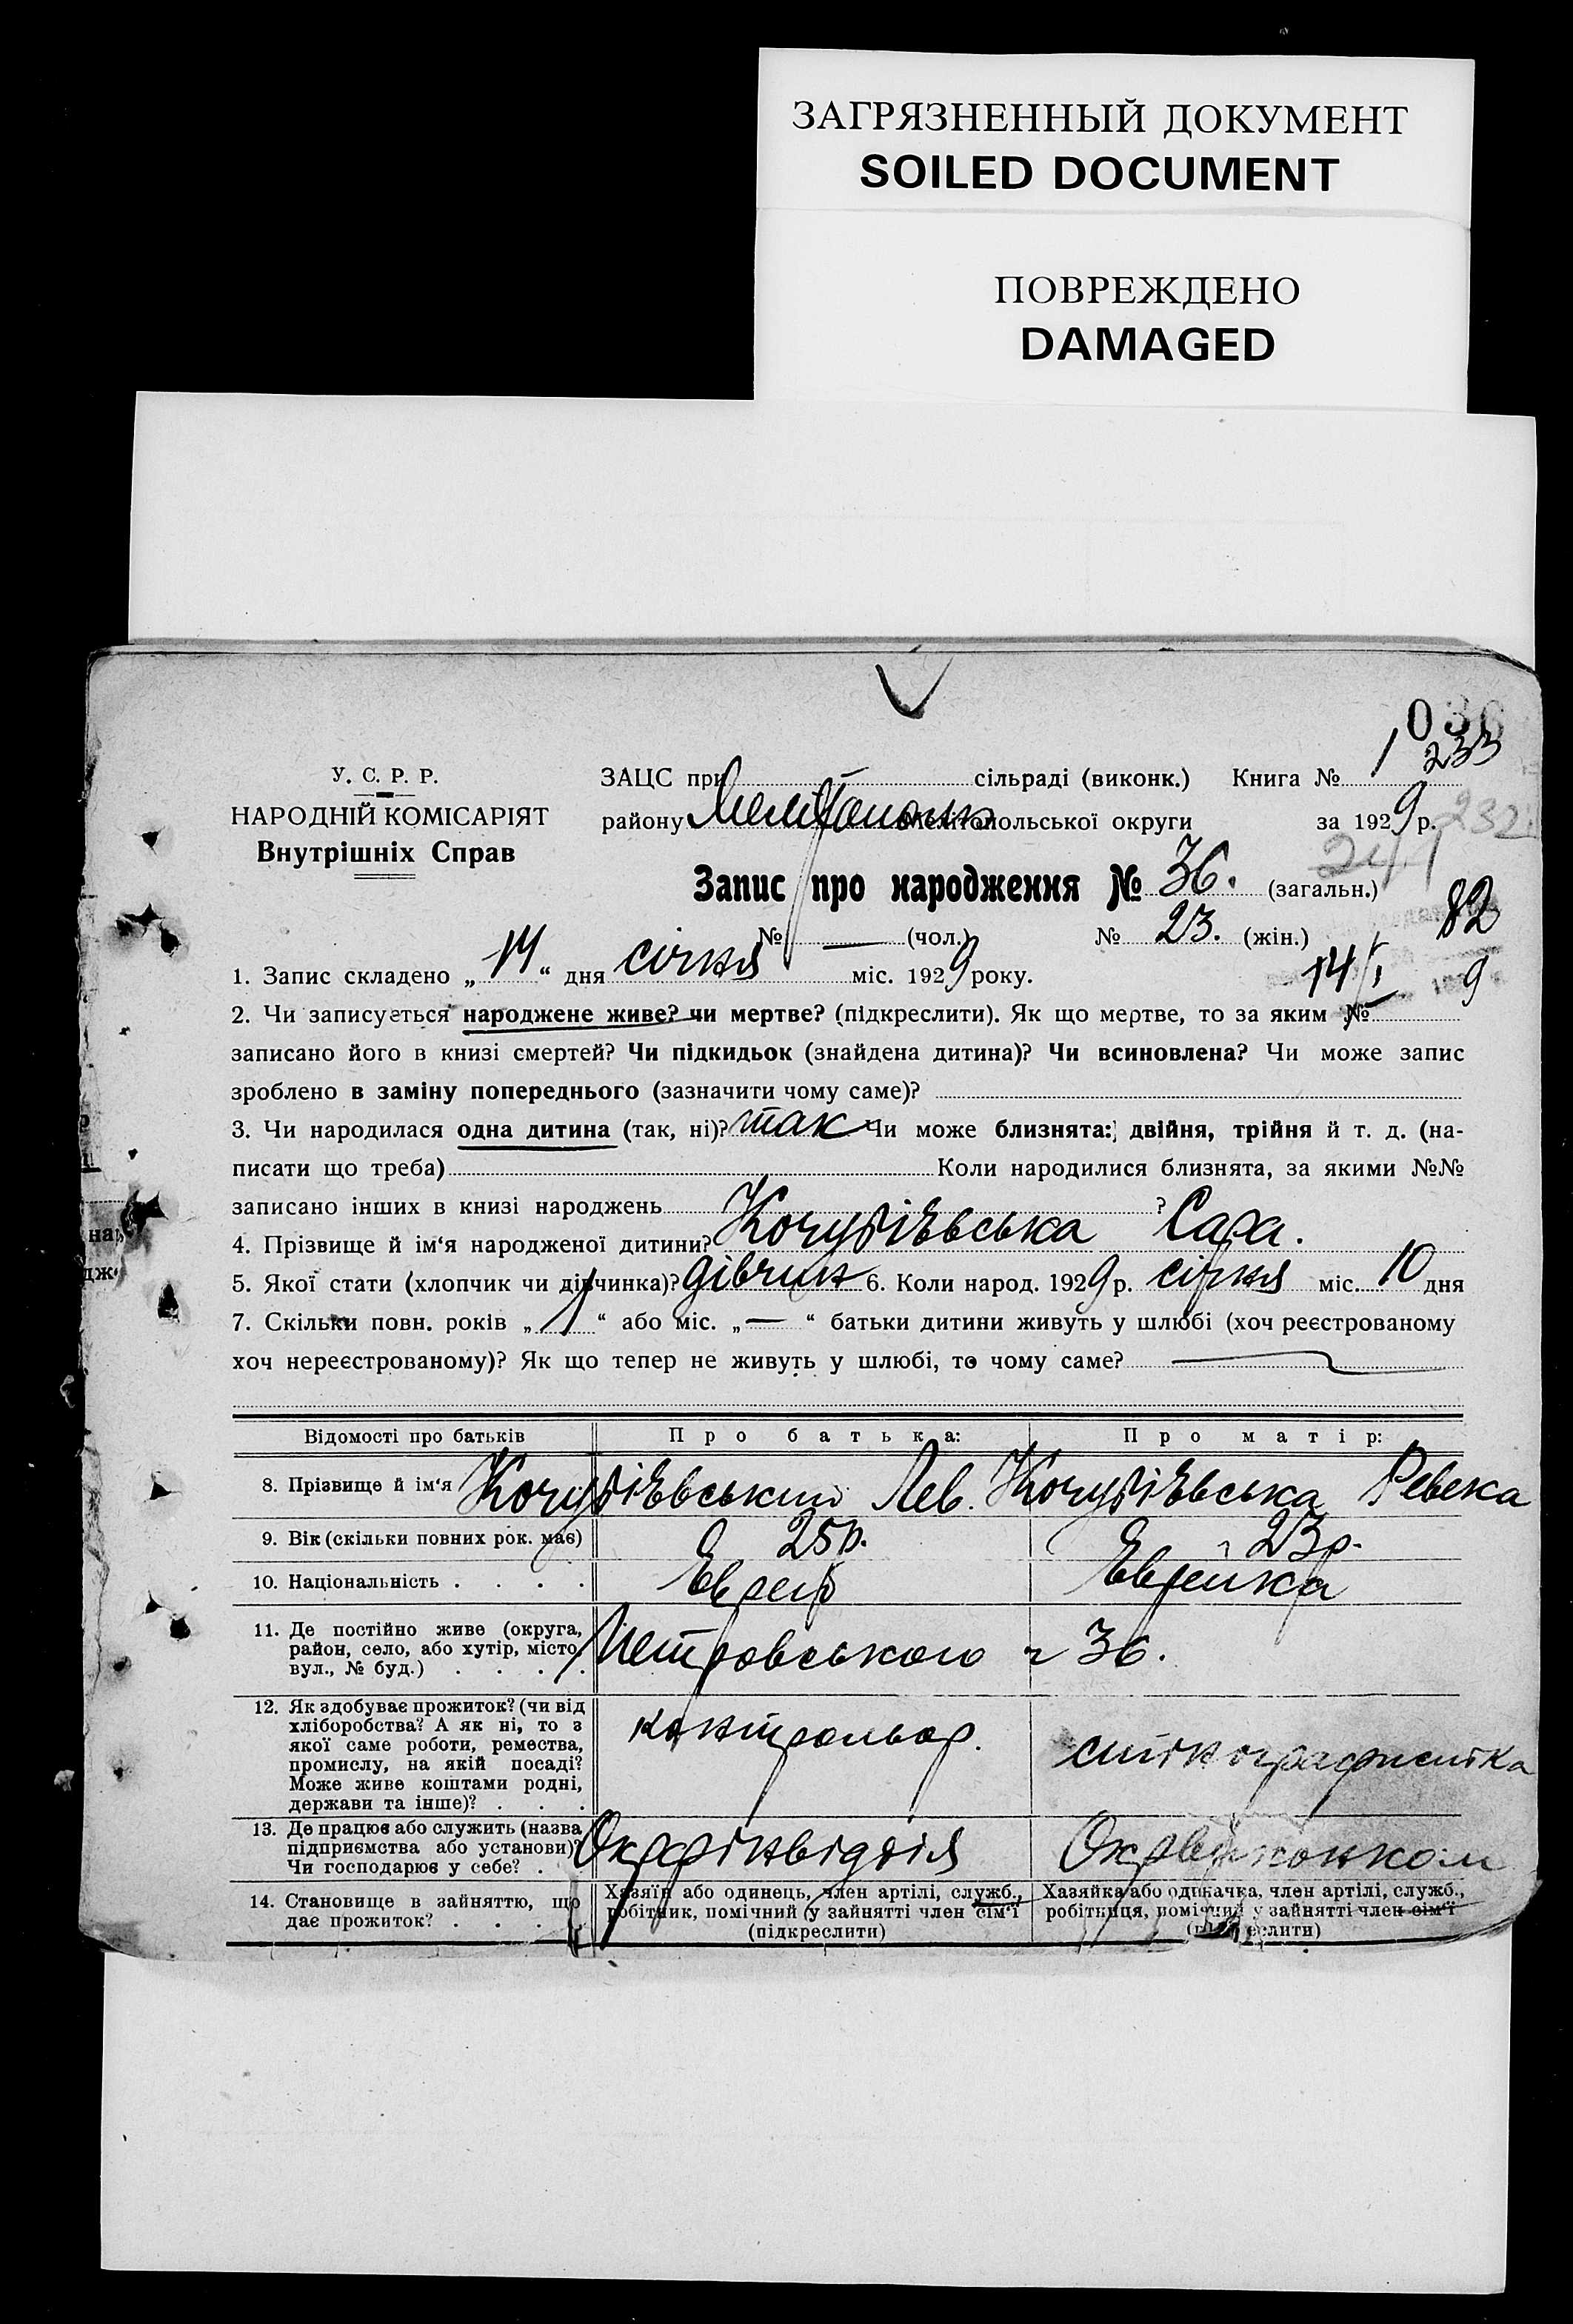 ЗАГРЯЗНЕННЫЙ ДОКУМЕНТ
SOILED DOCUMENT
ПОВРЕЖДЕНО
DAMAGED
036
У. С. Р. Р.
НАРОДНІЙ КОМІСАРІЯТ
Внутрішніх Справ
ЗАЦС при — сільраді (виконк.) Книга № 1 233
району Мелітопольської округи за 1929 р. 232
241
Запис про народження № 36. (загальн.)
82
№ — (чол.) № 23. (жін.)
14/I 9
1. Запис складено „14“ дня січня міс. 1929 року.
2. Чи записується народжене живе? чи мертве? (підкреслити). Як що мертве, то за яким №
записано його в книзі смертей? Чи підкидьок (знайдена дитина)? Чи всиновлена? Чи може запис
зроблено в заміну попереднього (зазначити чому саме)?
3. Чи народилася одна дитина (так, ні)? так Чи може близнята: двійня, трійня й т. д. (на-
писати що треба) Коли народилися близнята, за якими №№
записано інших в книзі народжень ?
4. Прізвище й ім‘я народженої дитини? Сара.
5. Якої стати (хлопчик чи дівчинка)? дівчин 6. Коли народ. 1929 р. січня міс. 10 дня
7. Скільки повн. років „1“ або міс. „—“ батьки дитини живуть у шлюбі (хоч реєстрованому
хоч нереєстрованому)? Як що тепер не живуть у шлюбі, то чому саме? —
Відомості про батьків Про батька: Про матір:
8. Прізвище й ім‘я Лев. Ревека
9. Вік (скільки повних рок. має) 25р. 23р.
10. Національність . . . . Еврей Еврейка
11. Де постійно живе (округа,
район, село, або хутір, місто,
вул., № буд.) . . . . Петровського ч 36.
12. Як здобуває прожиток? (чи від
хліборобства? А як ні, то з
якої саме роботи, ремества,
промислу, на якій посаді?
Може живе коштами родні,
держави та інше)? . . . контрольор.
13. Де працює або служить (назва
підприємства або установи)?
Чи господарює у себе? . Окрфінвідділ Окрвиконком
14. Становище в зайняттю, що
дає прожиток? . . . .
Хазяїн або одинець, член артілі, служб.,
робітник, помічний у зайнятті член сім‘ї
(підкреслити)
Хазяйка або одиначка, член артілі, служб.,
робітниця, помічний у зайнятті член сім‘ї
(підкреслити)